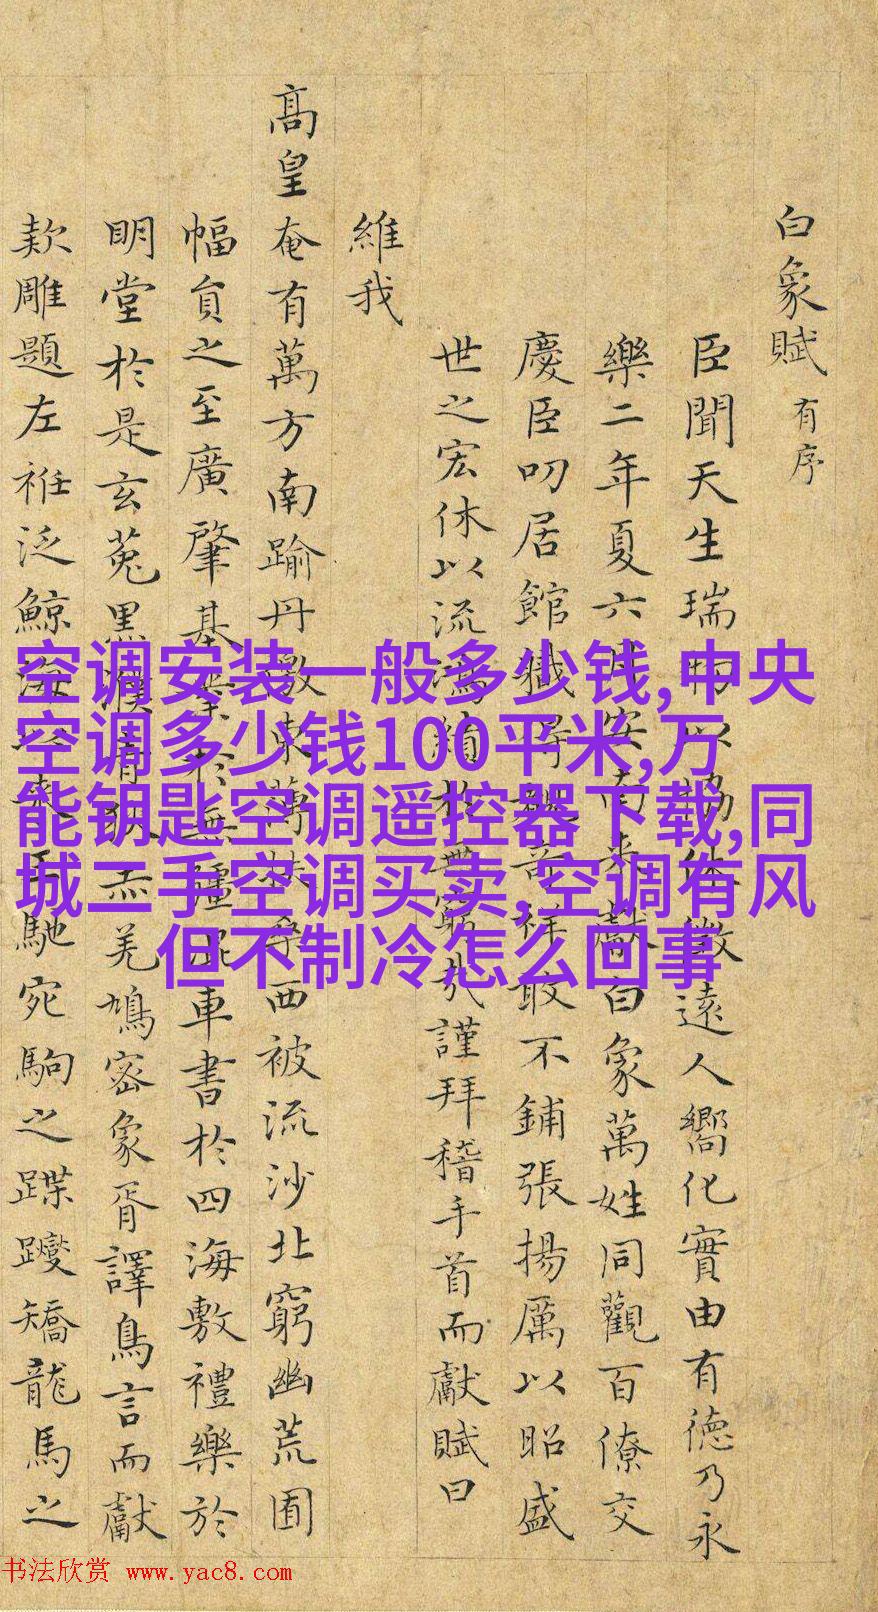 白象賦 有序
臣聞天生瑞物以協休徵遠人嚮化實由有德乃永
樂二年夏六月安南來獻白象萬姓同觀百僚交
慶臣叨居館職得奇祥敢不鋪張揚厲以昭盛
世之宏休以流鴻績於無窮哉謹拜稽手首而獻賦曰
維我
高皇奄有萬方南踰丹徼東薄扶桑西被流沙北窮幽荒圃
幅員之至廣肇基業於無疆混車書於四海敷禮樂於
明堂於是玄菟黑濮青狄赤羌鳩密象胥譯鳥言而獻
款雕題左衽泛鯨海以來王馳宛駒之蹀躞矯龍馬之
空调安装一般多少钱,中央
空调多少钱100平米,万
能钥匙空调遥控器下载,同
城二手空调买卖,空调有风
但不制冷怎么回事
书法欣赏 www.yac8.com